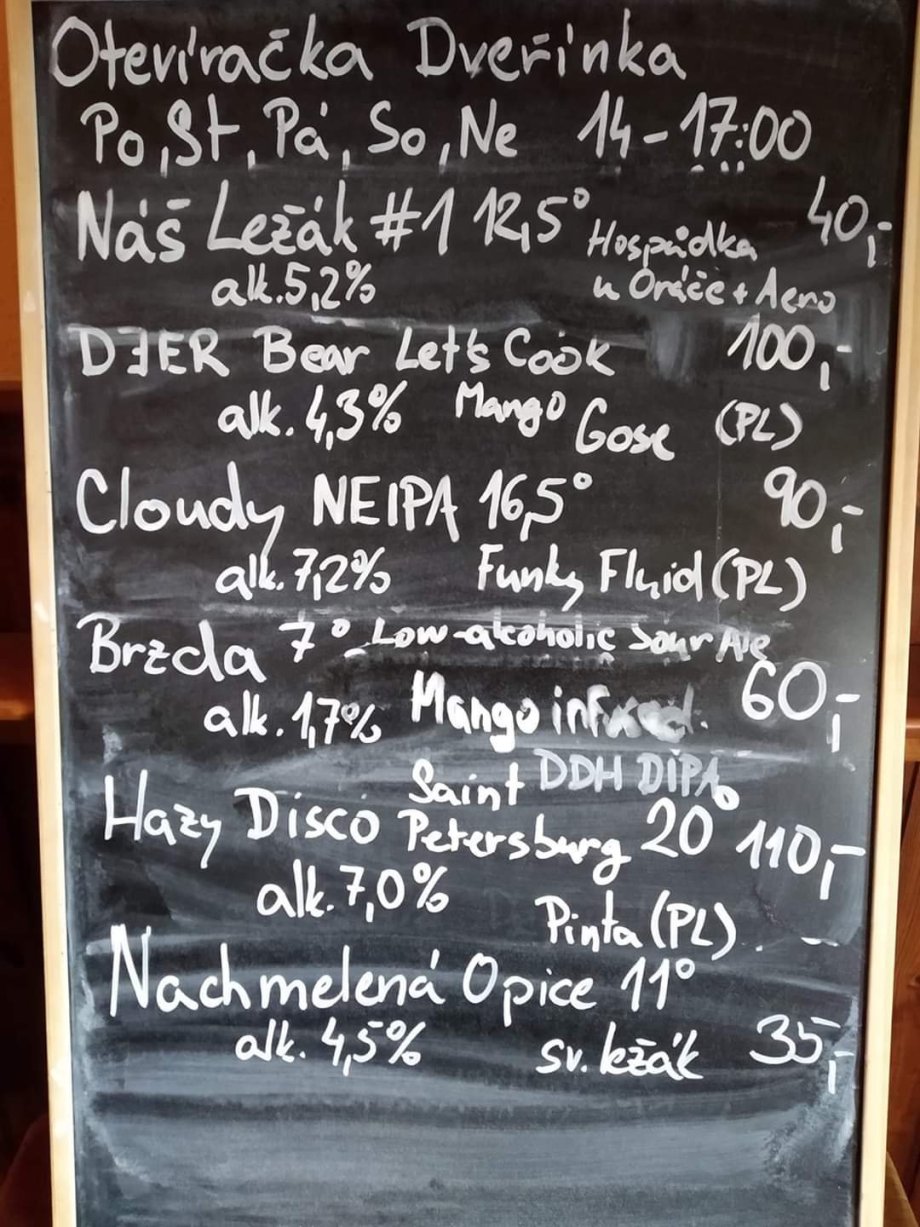 Otevíračka Dveřinka
Po, St, Pá, So, Ne 14-17:00
Náš Ležák #1 12,5° 40,-
alk. 5,2% Hospůdka
u Oráče + Aero
DƎER Bear Let's Cook 100,-
alk. 4,3% Mango Gose (PL)
Cloudy NEIPA 16,5° 90,-
alk. 7,2% Funky Fluid (PL)
Brzda 7° - Low-alcoholic Sour Ale
alk. 1,7% Mango infused. 60,-
Saint DDH DIPA
Hazy Disco Petersburg 20° 110,-
alk. 7,0%
Pinta (PL)
Nachmelená Opice 11°
alk. 4,5% sv. ležák 35,-